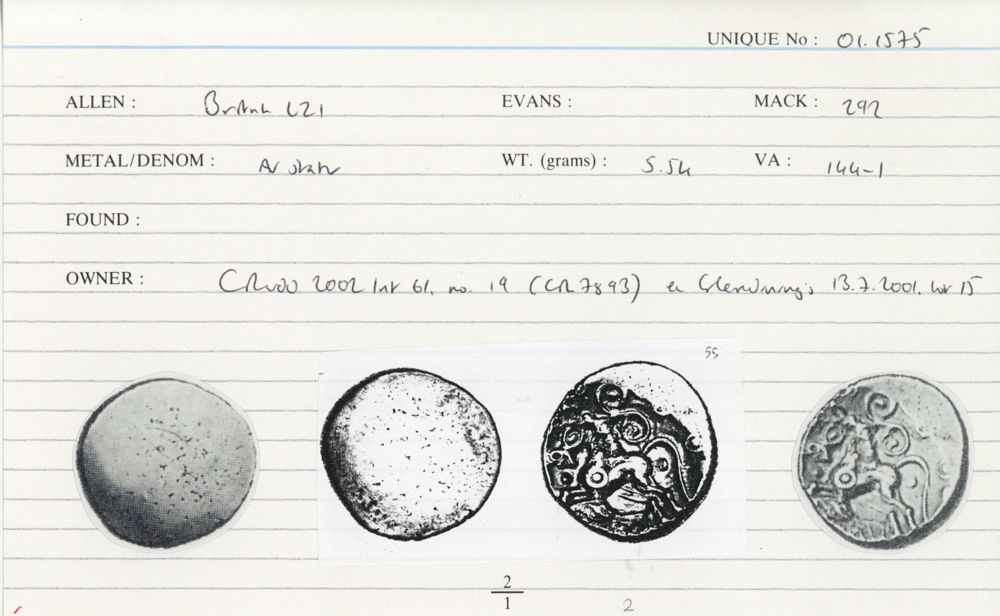 UNIQUE No : 01.1575
ALLEN : British L21 EVANS : MACK : 292
METAL/DENOM : AV stater WT. (grams) : 5.54 VA : 144-1
FOUND :
OWNER : 2002 list 61, no. 19 (CR7893) ex Glendining's 13.7.2001, lot 15
55
2
1
2